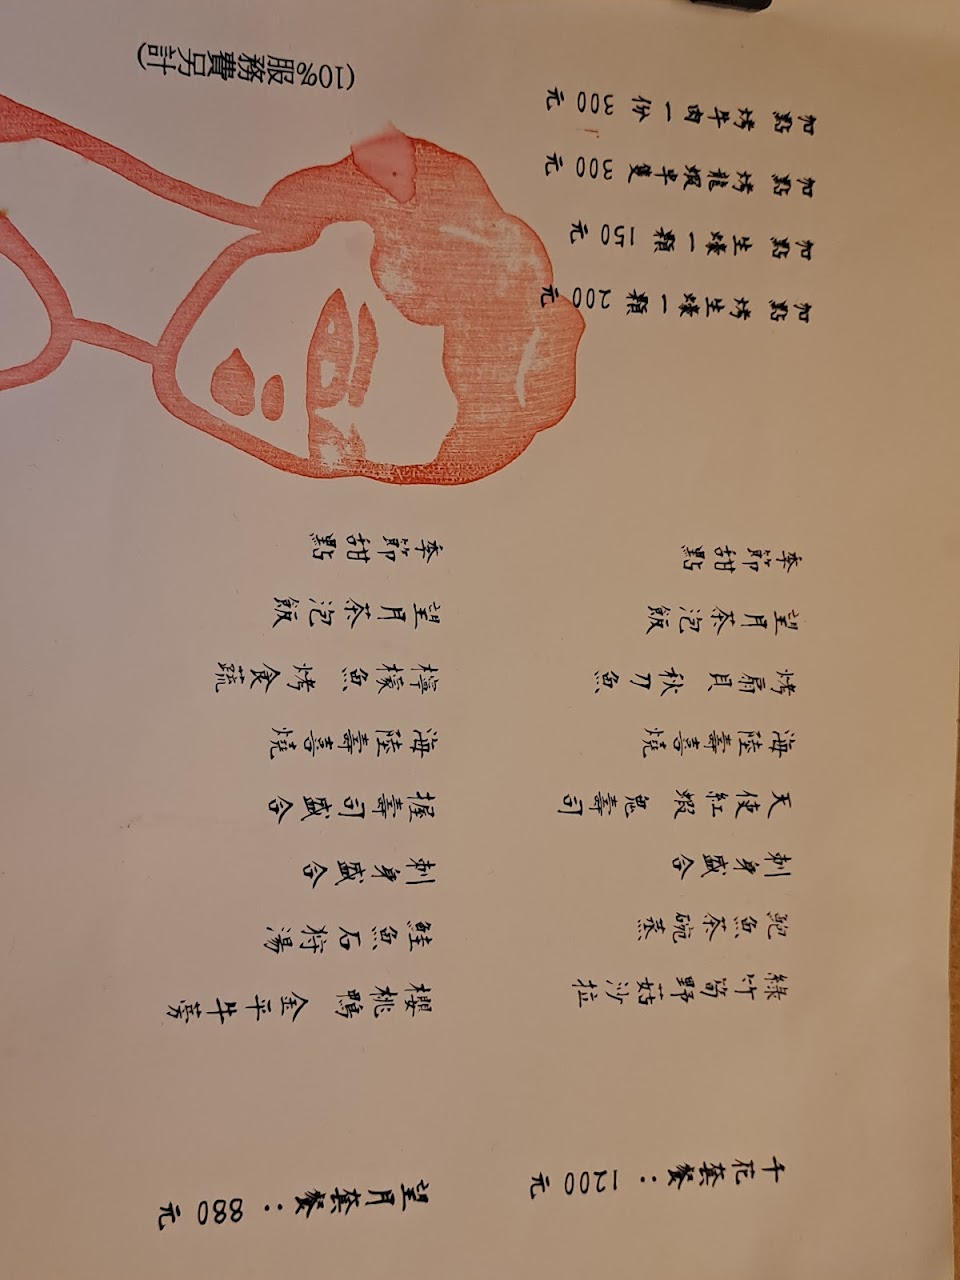 千花套餐：1200元
綠竹筍野菇沙拉
鮑魚茶碗蒸
刺身盛合
天使紅蝦 鬼壽司
海陸壽喜燒
烤扇貝 秋刀魚
望月茶泡飯
季節甜點
望月套餐：880元
櫻桃鴨 金平牛蒡
鮭魚石狩湯
刺身盛合
握壽司盛合
海陸壽喜燒
檸檬魚 烤食蔬
望月茶泡飯
季節甜點
加點 烤生蠔一顆 200元
加點 生蠔一顆 150元
加點 烤龍蝦半隻 300元
加點 烤牛肉一份 300元
(10%服務費另計)